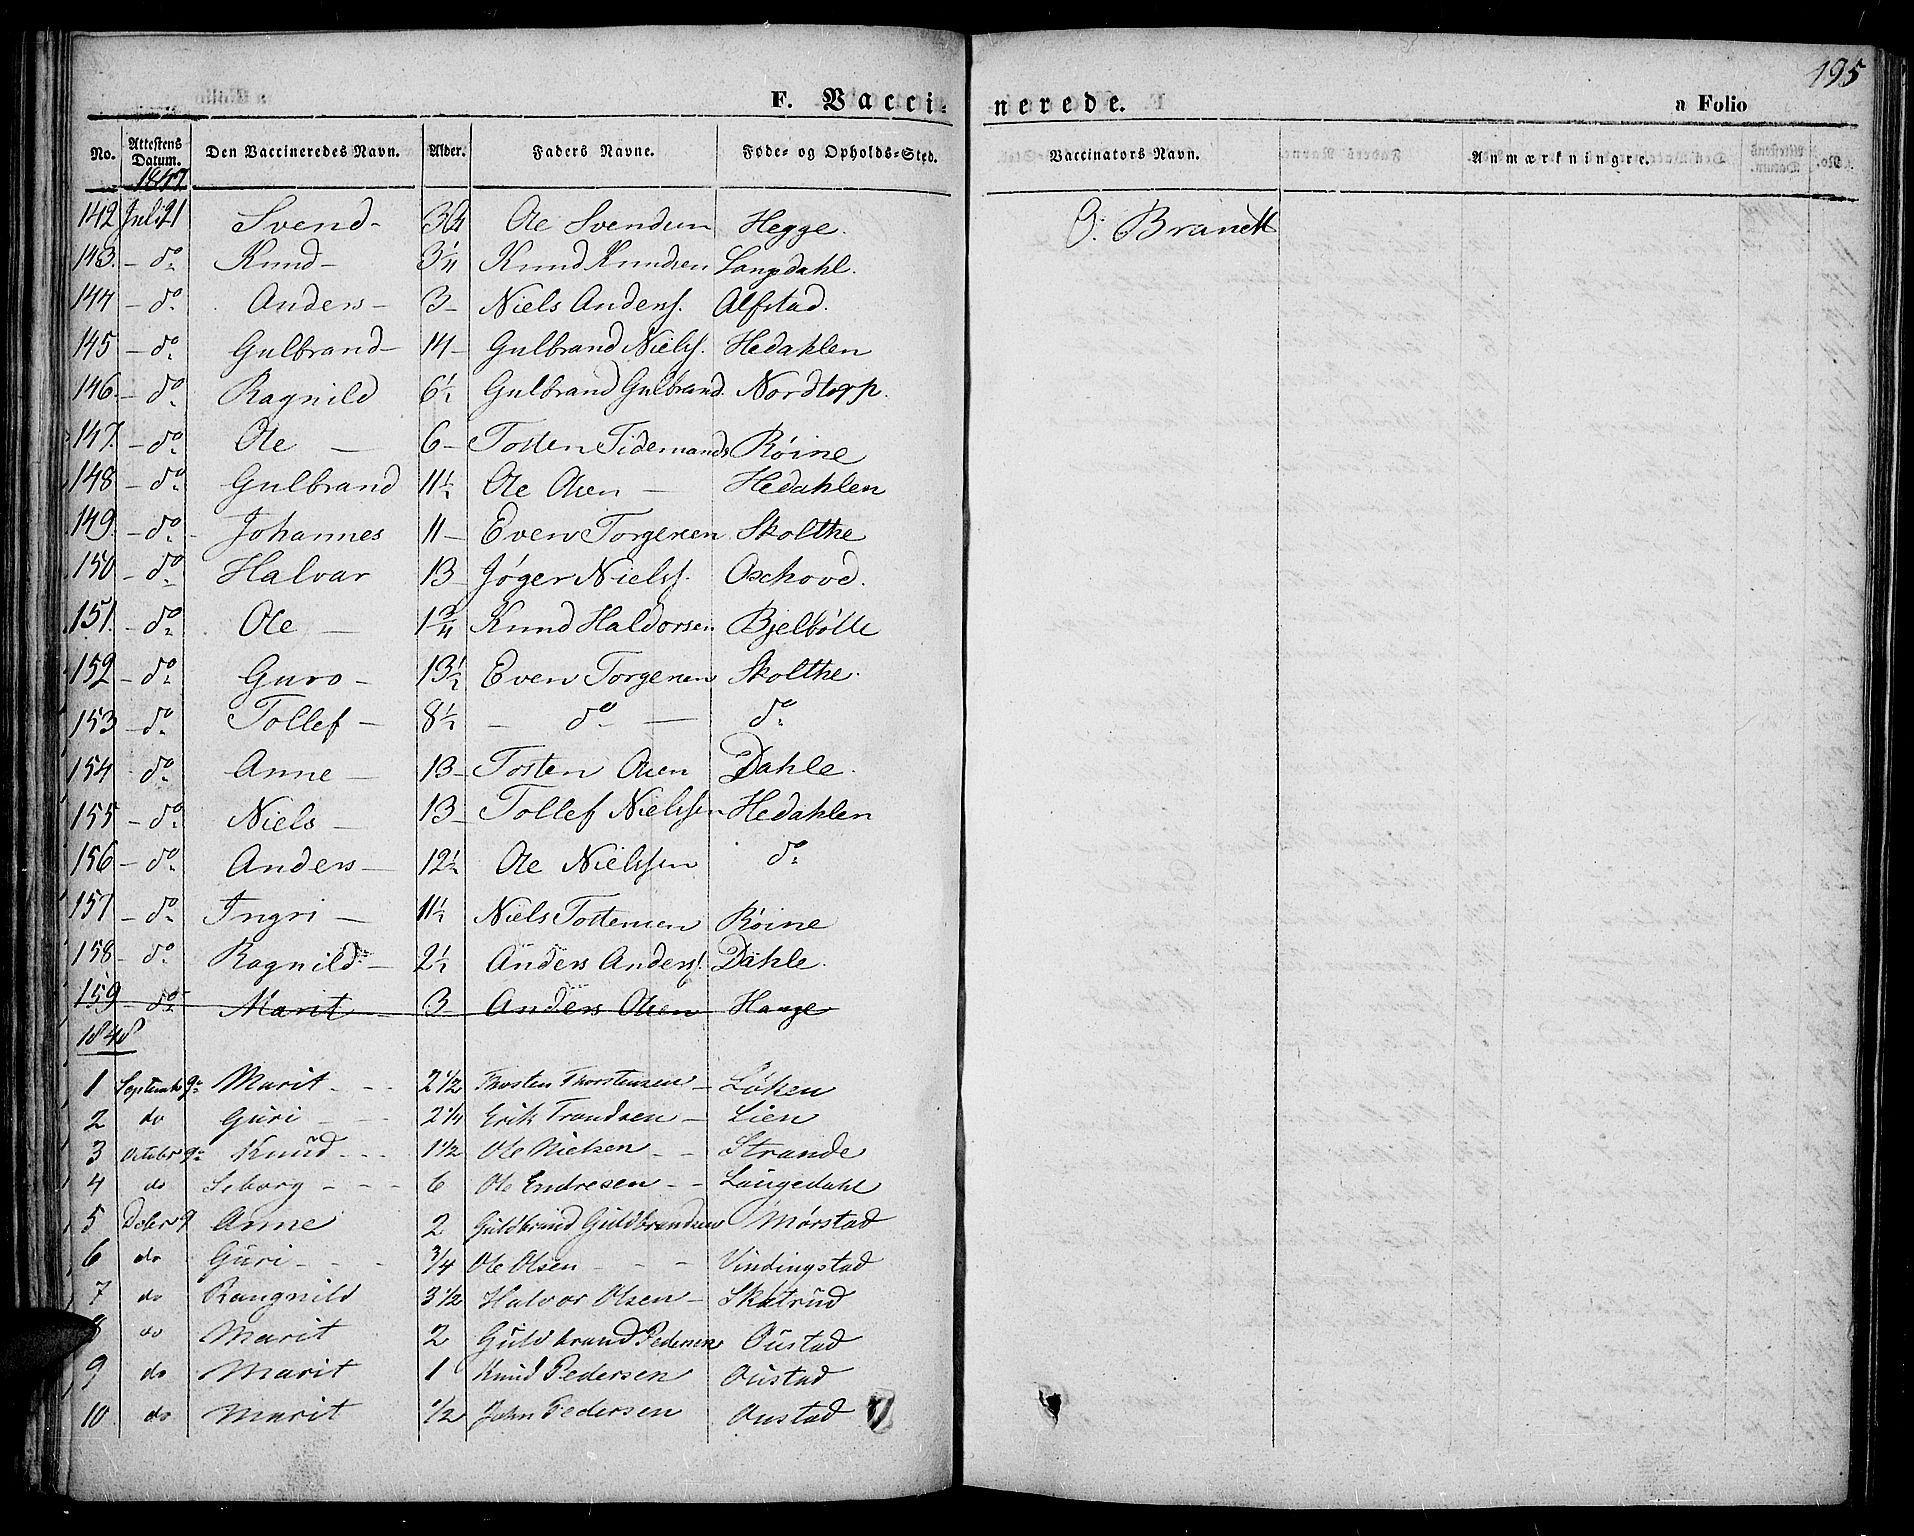 195
F. Vaccinerede.
a Folio
No. Attestens Datum. Den Vaccineredes Navn. Alder. Faders Navne. Føde- og Opholds-Sted. Vaccinators Navn. Anmærkningre.
1847
142 Juli 21 Svend - Ole Svendsen Hegge. O. Brandt
143. - do Knud - 3 1/4 Knud Knudsen Langdahl.
144 - do Anders - 3 - Niels Anders. Alfstad.
145 - do Gulbrand - 14 - Gulbrand Nielss. Hedahlen
146. - do Ragnild 6 1/2 Gulbrand Gulbrand. Nordtorp.
147. - do Ole - 6 - Tosten Tidemands Røine
148 - do Gulbrand 11 1/2 Ole Olsen - Hedahlen
149. - do - Johannes 11 - Even Torgersen Skolthe
150 - do Halvar 13 Jøger Nielss. Oschovd.
151. - do Ole - 1 3/4 Knud Haldorsen Bjelbølle
152 - do Guro - 13 1/2 Even Torgersen Skolthe.
153 - do Tollef - 8 1/2 - do - do
154 do Anne - 13 - Tosten Olsen Dahle.
155 - do Niels - 13 - Tollef Nielssen Hedahlen
156 - do Anders - 12 1/2 Ole Nielssen do
157 - do Ingri - 11 1/2 Niels Tostensen Røine
158 - do Ragnild - 2 1/2 Anders Anderss. Dahle.
159 do Marit - 3 - Anders Olsen Hauge
1848
1 Septembr 9de Marit - - 2 1/2 Thosten Thorstensen - Løken
2 do Guri - - 2 1/4 Erik Trondsen - Lien
3 Octobr 9de Knud - - - 1 1/2 Ole Nielsen - - Strande
4 do Siborg - - - 6 Ole Endresen - - Langedahl
5 Decbr 9 Anne 2 Guldbrand Guldbrandsen Mørstad
6 do Guri - - - 3/4 Ole Olsen - - - Vindingstad
7 do Rangnild 3 1/2 Halvor Olsen - Skatrud
8 do Marit 2 Guldbrand Pedersen Oustad
9 do Marit 1 Knud Pedersen Oustad
10 do Marit 1/2 John Pedersen Oustad